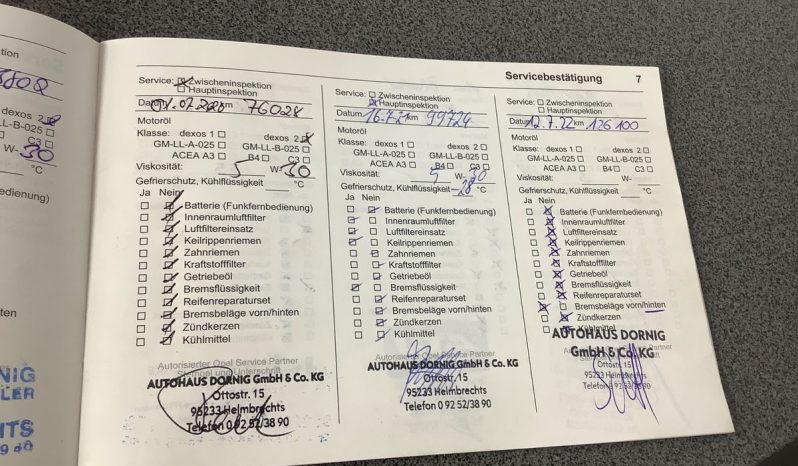 Servicebestätigung 7
Service: Zwischeninspektion
Hauptinspektion
Datum 76028
Motoröl
Klasse: dexos 1 dexos 2
GM-LL-A-025 GM-LL-B-025
ACEA A3 B4 C3
Viskosität: 5 W-30
Gefrierschutz, Kühlflüssigkeit °C
Ja Nein
Batterie (Funkfernbedienung)
Innenraumluftfilter
Luftfiltereinsatz
Keilrippenriemen
Zahnriemen
Kraftstofffilter
Getriebeöl
Bremsflüssigkeit
Reifenreparaturset
Bremsbeläge vorn/hinten
Zündkerzen
Kühlmittel
Autorisierter Opel Service Partner
Stempel und Unterschrift
AUTOHAUS DORNIG GmbH & Co. KG
Ottostr. 15
95233 Helmbrechts
Telefon 0 92 52/38 90
Service: Zwischeninspektion
Hauptinspektion
Datum 16.7.21 km 99724
Motoröl
Klasse: dexos 1 dexos 2
GM-LL-A-025 GM-LL-B-025
ACEA A3 B4 C3
Viskosität: 5 W-30
Gefrierschutz, Kühlflüssigkeit -28 °C
Ja Nein
Batterie (Funkfernbedienung)
Innenraumluftfilter
Luftfiltereinsatz
Keilrippenriemen
Zahnriemen
Kraftstofffilter
Getriebeöl
Bremsflüssigkeit
Reifenreparaturset
Bremsbeläge vorn/hinten
Zündkerzen
Kühlmittel
Autorisierter Opel Service Partner
AUTOHAUS DORNIG GmbH & Co. KG
Ottostr. 15
95233 Helmbrechts
Telefon 0 92 52/38 90
Service: Zwischeninspektion
Hauptinspektion
Datum 12.7.22 km 126 100
Motoröl
Klasse: dexos 1 dexos 2
GM-LL-A-025 GM-LL-B-025
ACEA A3 B4 C3
Viskosität: W-
Gefrierschutz, Kühlflüssigkeit °C
Ja Nein
Batterie (Funkfernbedienung)
Innenraumluftfilter
Luftfiltereinsatz
Keilrippenriemen
Zahnriemen
Kraftstofffilter
Getriebeöl
Bremsflüssigkeit
Reifenreparaturset
Bremsbeläge vorn/hinten
Zündkerzen
Kühlmittel
AUTOHAUS DORNIG
GmbH & Co. KG
Ottostr. 15
95233 Helmbrechts
Telefon 0 92 52/38 90